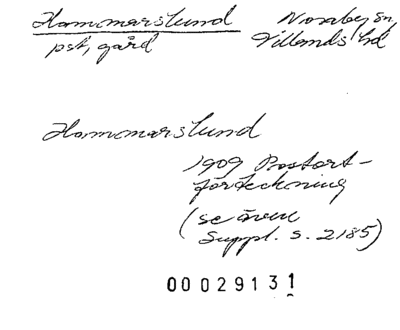 Hammarslund Norraby sn,
pst, gård Villands hd
Hammarslund
1909 Postort-
förteckning
(se även
Suppl. s. 2185)
00029131